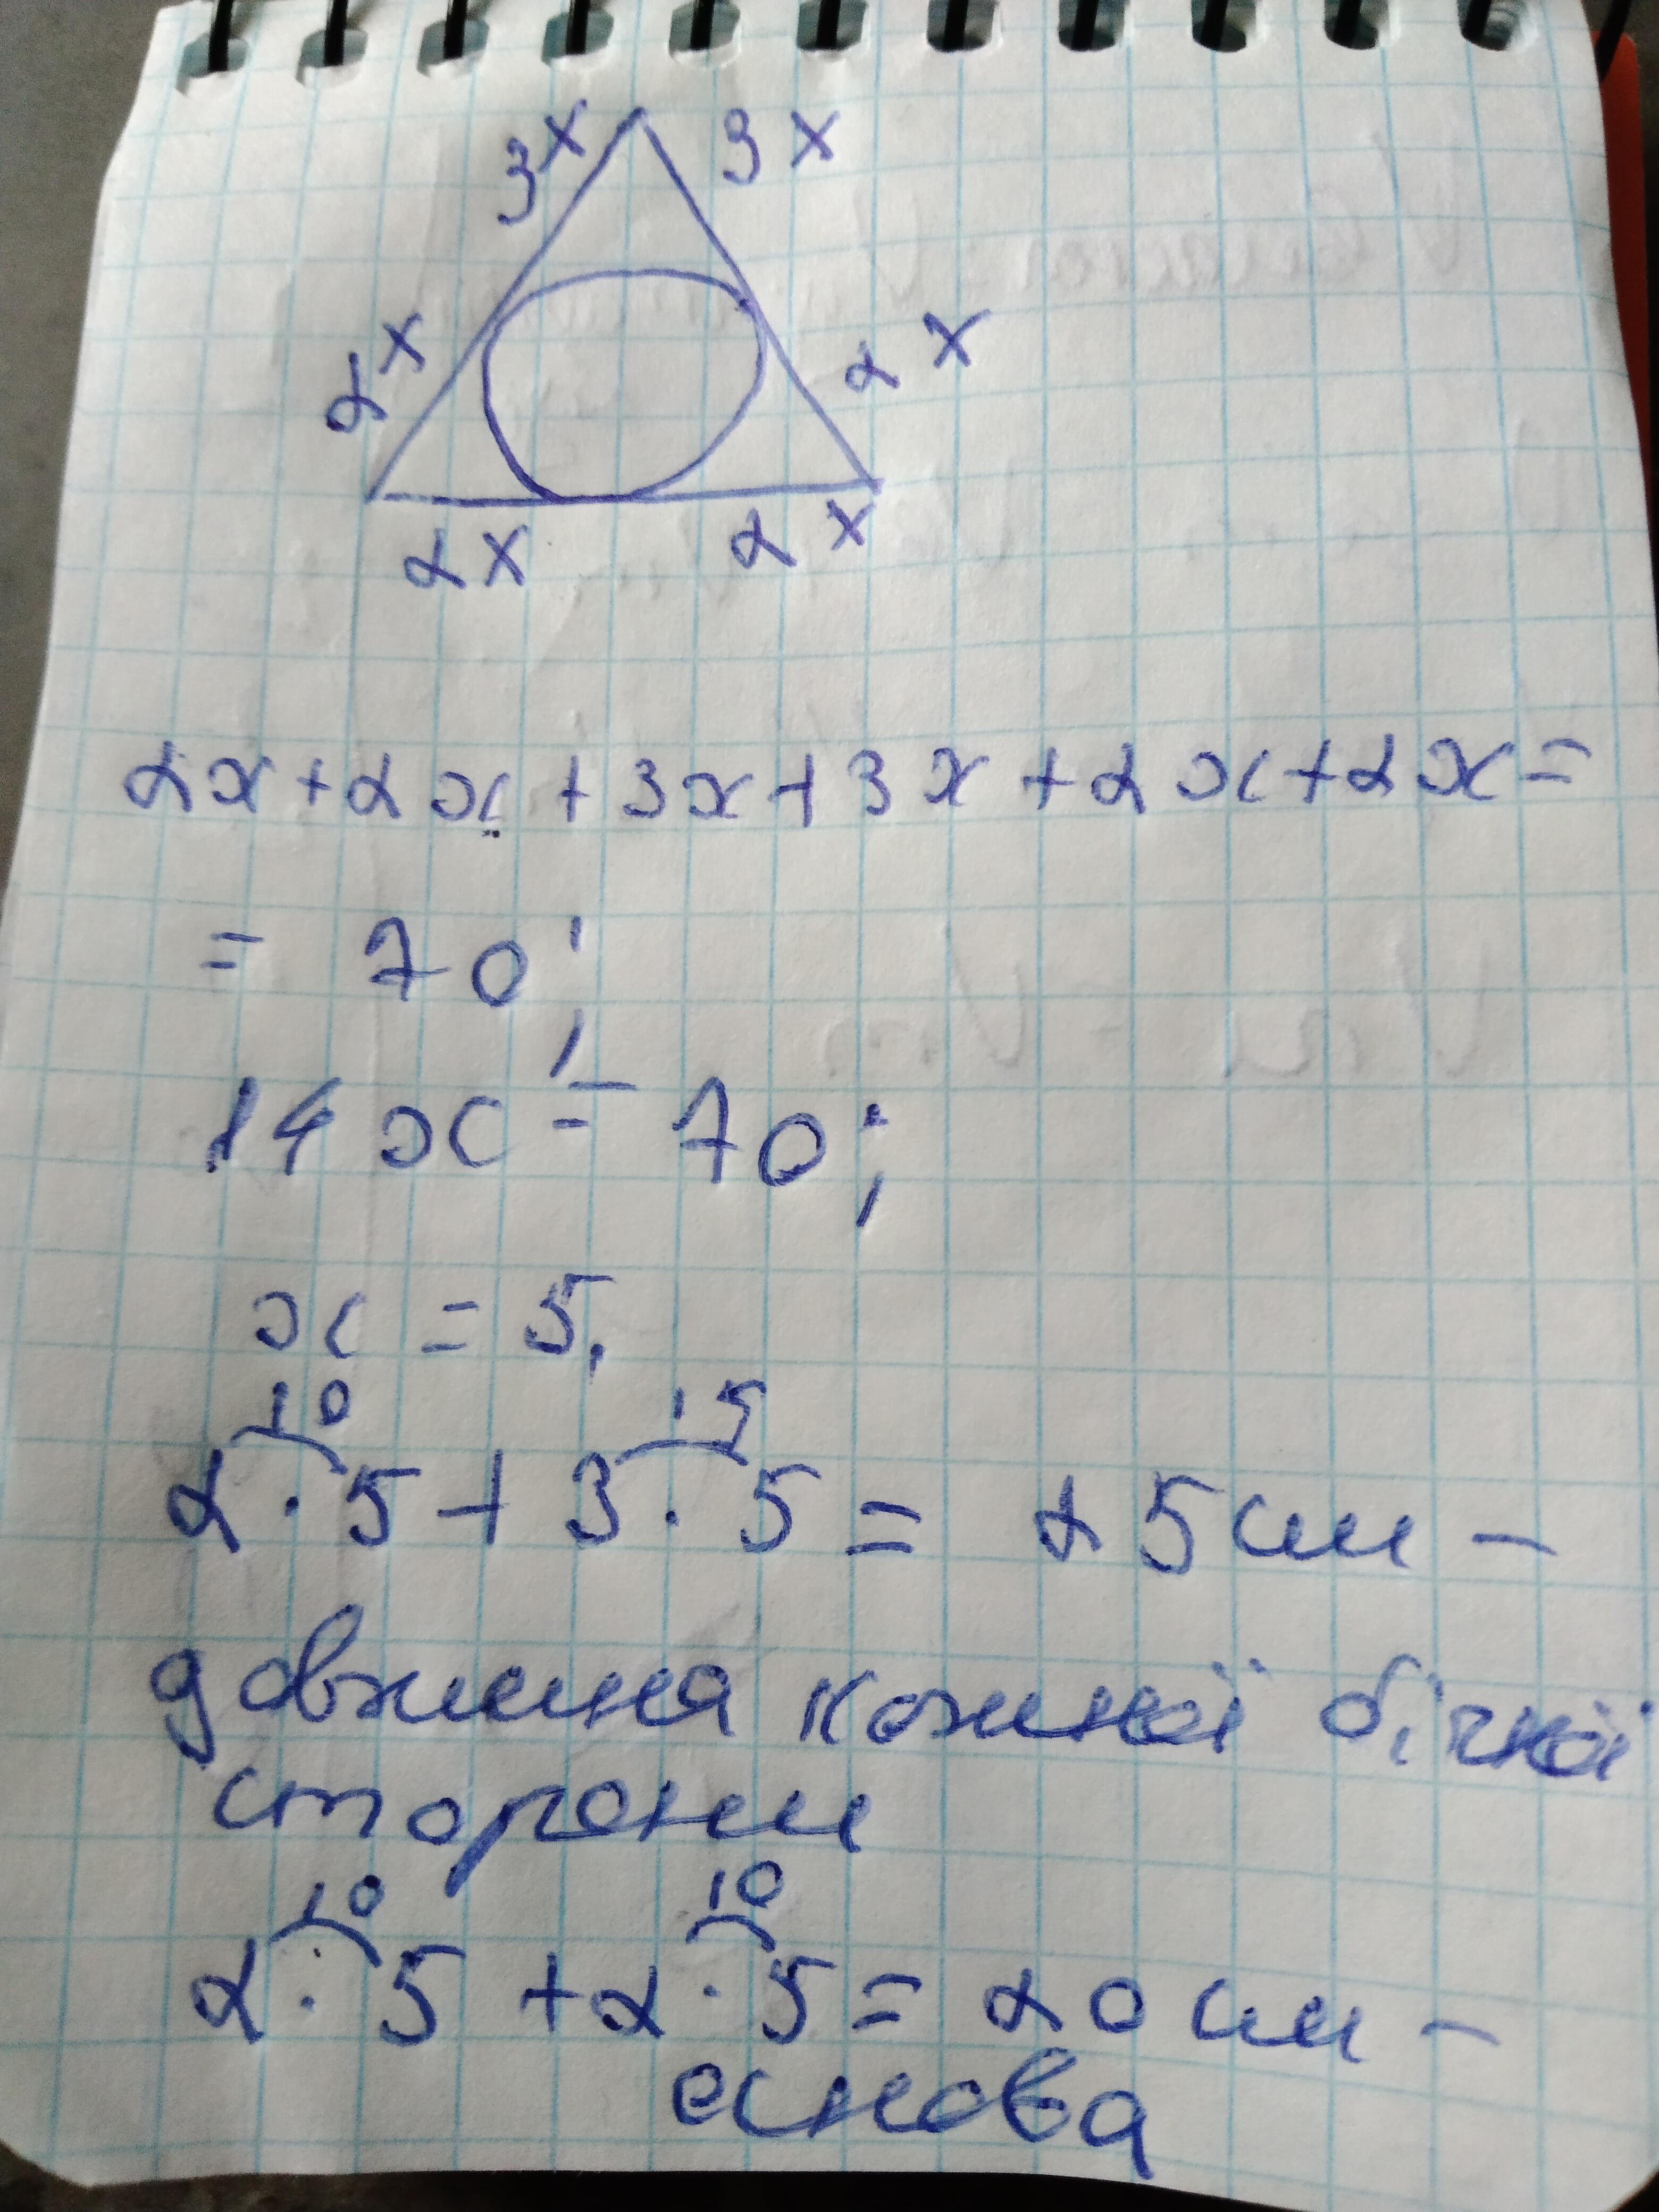 3x 3x
2x 2x
2x 2x
2x+2x+3x+3x+2x+2x=
= 70;
14x = 70;
x = 5.
10 15
2·5+3·5= 25 см -
довжина кожної бічної
сторони
10 10
2·5+2·5= 20 см -
основа